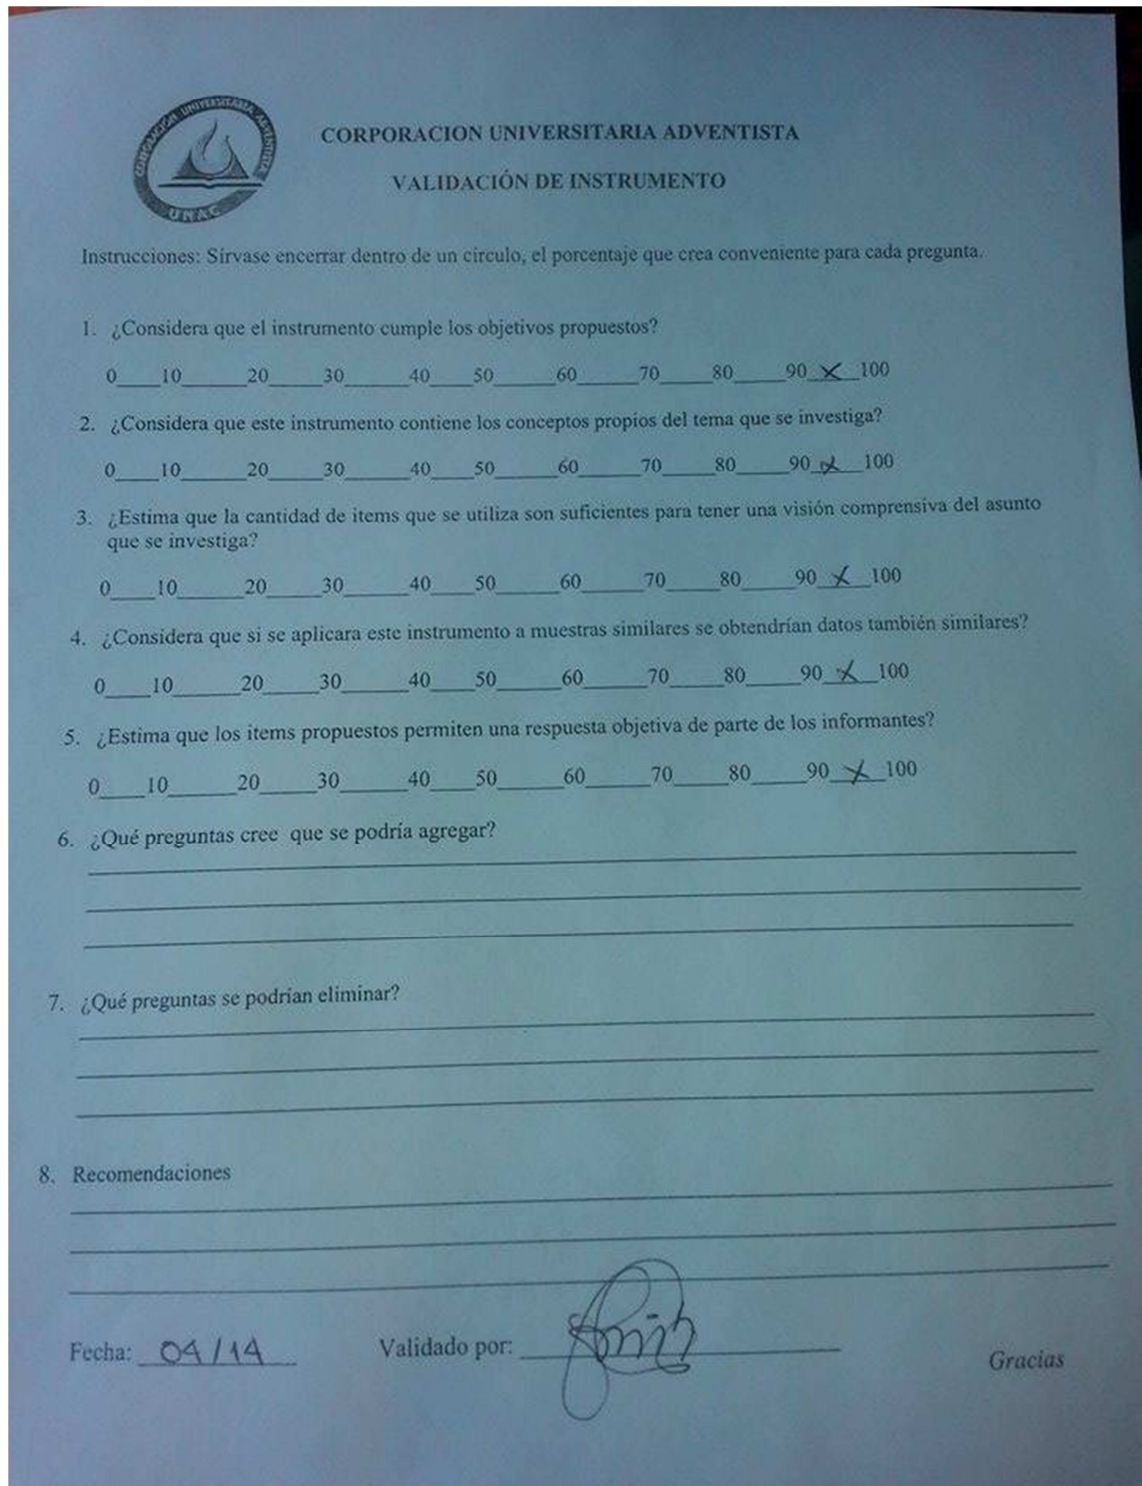 CORPORACIÓN UNIVERSITARIA ADVENTISTA
UNAC
CORPORACION UNIVERSITARIA ADVENTISTA
VALIDACIÓN DE INSTRUMENTO
Instrucciones: Sírvase encerrar dentro de un círculo, el porcentaje que crea conveniente para cada pregunta.
1. ¿Considera que el instrumento cumple los objetivos propuestos?
0____10______20_____30______40____50______60______70_____80_____90_X_100
2. ¿Considera que este instrumento contiene los conceptos propios del tema que se investiga?
0____10______20_____30______40____50______60______70_____80_____90_X_100
3. ¿Estima que la cantidad de items que se utiliza son suficientes para tener una visión comprensiva del asunto
que se investiga?
0____10______20_____30______40____50______60______70_____80_____90_X_100
4. ¿Considera que si se aplicara este instrumento a muestras similares se obtendrían datos también similares?
0____10______20_____30______40____50______60______70_____80_____90_X_100
5. ¿Estima que los items propuestos permiten una respuesta objetiva de parte de los informantes?
0____10______20_____30______40____50______60______70_____80_____90_X_100
6. ¿Qué preguntas cree que se podría agregar?
7. ¿Qué preguntas se podrían eliminar?
8. Recomendaciones
Fecha: 04/14 Validado por:
Gracias